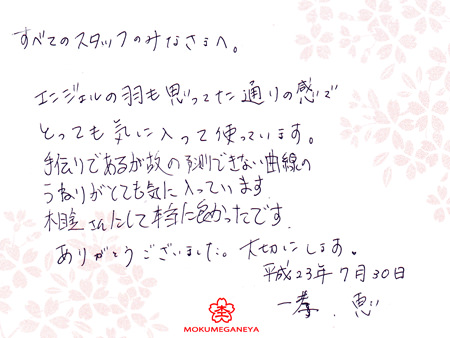 すべてのスタッフのみなさまへ。
エンジェルの羽も思ってた通りの感じで
とっても気に入って使っています。
手作りであるが故の予測できない曲線の
うねりがとても気に入っています
杢目金屋さんにして本当に良かったです.
ありがとうございました。大切にします。
平成23年7月30日
一孝.恵
MOKUMEGANEYA